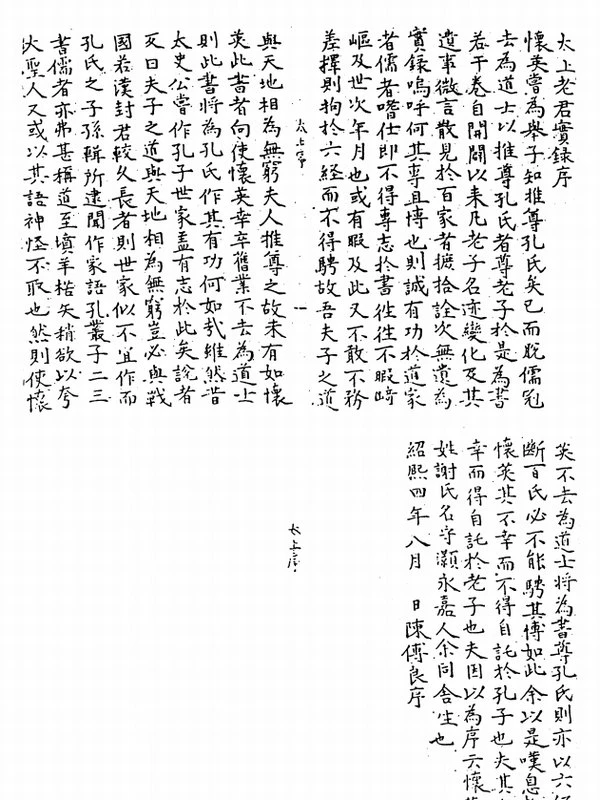 太上老君實錄序
懷英嘗為舉子知推尊孔氏矣已而脫儒冠
去為道士以推尊孔氏者尊老子於是為書
若干卷自開闢以来凡老子名迹變化及其
遺事微言散見於百家者攟拾詮次無遺為
實錄嗚呼何其專且博也則誠有功於道家
者儒者嗜仕即不得專志於書徃徃不暇﨑
嶇及世次年月也或有暇及此又不敢不務
差擇則拘於六經而不得騁故吾夫子之道
太上序
一
與天地相為無窮夫人推尊之故未有如懷
英此書者向使懷英幸卒舊業不去為道士
則此書將為孔氏作其有功何如㦲雖然昔
太史公嘗作孔子世家盖有志於此矣說者
又曰夫子之道與天地相為無窮豈必與戰
國若漢封君較久長者則世家似不宜作而
孔氏之子孫輯所逮聞作家語孔叢子二三
書儒者亦弗甚稱道至墳羊楛矢稍欲以夸
大聖人又或以其語神怪不取也然則使懷
英不去為道士將為書尊孔氏則亦以六經
斷百氏必不能騁其博如此余以是嘆息
懷英其不幸而不得自託於孔子也夫其
幸而得自託於老子也夫因以為序云懷
姓謝氏名守灝永嘉人余同舍生也
紹熙四年八月 日陳傅良序
太上序